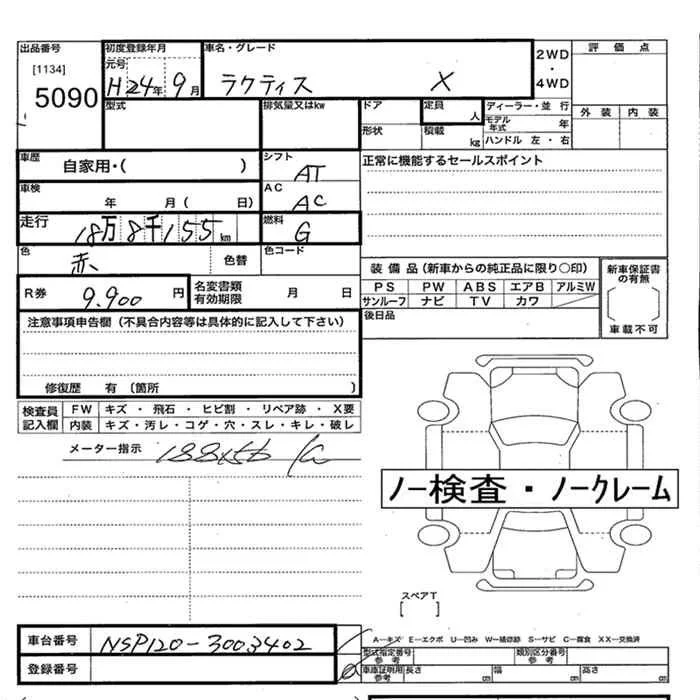 出品番号 初度登録年月 車名・グレード 2WD・4WD 評価点
[1134] 元号
5090 H24年 9月 ラクティス X
型式 排気量又はkw ドア 定員 人 ディーラー・並 行 外装 内装
モデル年式 年
形状 積載 kg ハンドル 左・右
車歴 自家用・( ) シフト AT 正常に機能するセールスポイント
車検 年 月( 日) AC AC
走行 18万8千155km 燃料 G
色 赤 色替 色コード 装備品(新車からの純正品に限り○印) 新車保証書の有無
PS PW ABS エアB アルミW
R券 9.900円 名変書類有効期限 月 日 サンルーフ ナビ TV カワ
車載不可
注意事項申告欄(不具合内容等は具体的に記入して下さい) 後日品
修復歴 有 (箇所 )
検査員記入欄 FW キズ・飛石・ヒビ割・リペア跡・X要
内装 キズ・汚レ・コゲ・穴・スレ・キレ・破レ
メーター指示
ノー検査・ノークレーム
スペアT
[ ]
A—キズ E—エクボ U—凹み W—補修跡 S—サビ C—腐食 XX—交換済
車台番号 NSP120-3003402 型式指定番号参考 類別区分番号参考
登録番号 車車証明用参考 長さ cm 幅 cm 高さ cm